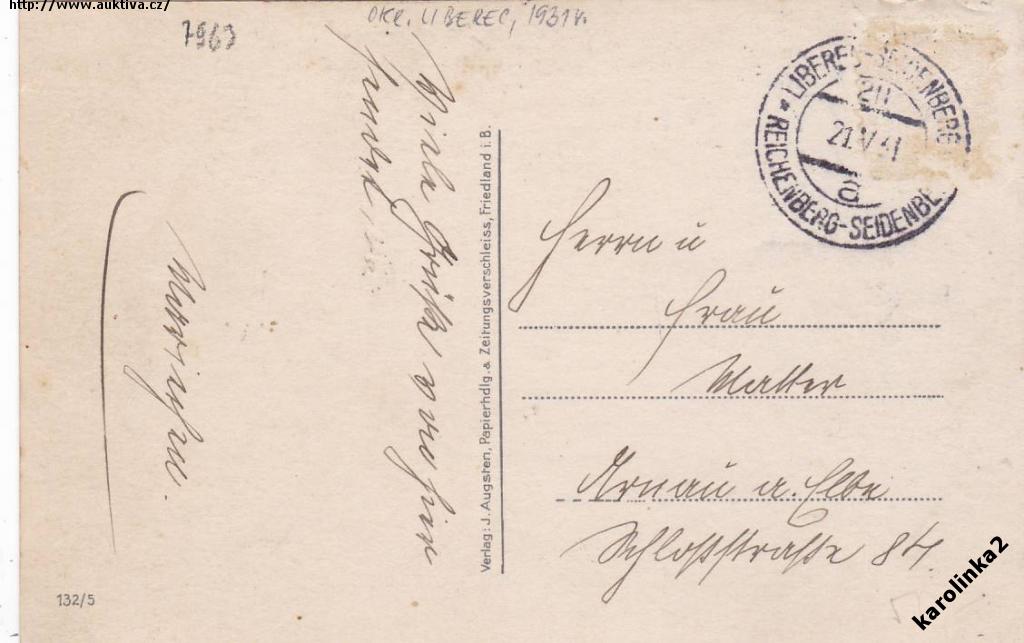 http://www.auktiva.cz/
7963
OKR. LIBEREC, 1931 r.
Viele Grüße von hier
sendet
LIBEREC-SEIDENBERG
REICHENBERG-SEIDENBE
21.V.31
a
Verlag: J. Augsten, Papierhdlg. & Zeitungsverschleiss, Friedland i. B.
Herrn u
Frau
Matter
Arnau a. Elbe
Schloßstraße 84.
132/5
karolinka2